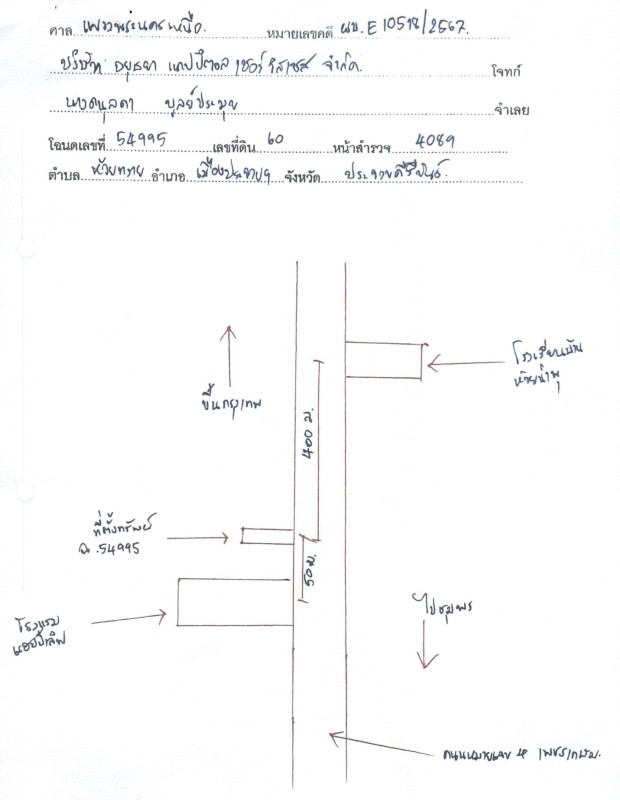 ศาล แพ่งพระนครเหนือ หมายเลขคดี ผบ.E10518/2567.
บริษัท อยุธยา แคปปิตอล เซอร์วิสเซส จำกัด. โจทก์
จำเลย
โฉนดเลขที่ 54995 เลขที่ดิน 60 หน้าสำรวจ 4089
ตำบล ห้วยทราย อำเภอ เมืองประจวบฯ จังหวัด ประจวบคีรีขันธ์.
โรงเรียนบ้าน
ห้วยน้ำพุ
ขึ้นกรุงเทพ
400 ม.
ที่ตั้งทรัพย์
ฉ.54995
50 ม.
ไปชุมพร
โรงแรม
แฮปปี้เลิฟ
ถนนหมายเลข 4 เพชรเกษม.